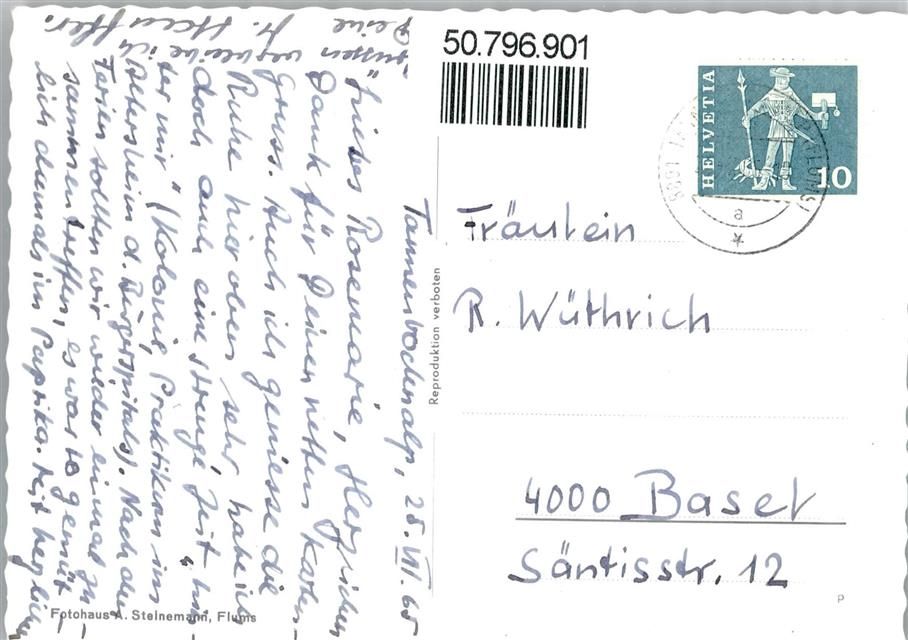 50.796.901
HELVETIA
10
8891
(FLUMS)
a
Fräulein
R. Wüthrich
4000 Basel
Säntisstr. 12
Reproduktion verboten
P
Fotohaus A. Steinemann, Flums
Tannenbodenalp, 25. VII. 65
Rosemarie, Herzlichen
Dank für Deinen netten Karten-
gruss. Auch ich geniesse die
Ruhe hier oben sehr, habe ich
doch auch eine strenge Zeit hin-
ter mir" (Kolonie, Praktikum im
Altersheim d. Bürgerspitals). Nach den
Ferien sollten wir wieder einmal zu-
sammen treffen, es war so gemüt-
lich damals im Paprika. Mit herzlichen
Grüssen verbleibe ich
Deine M.